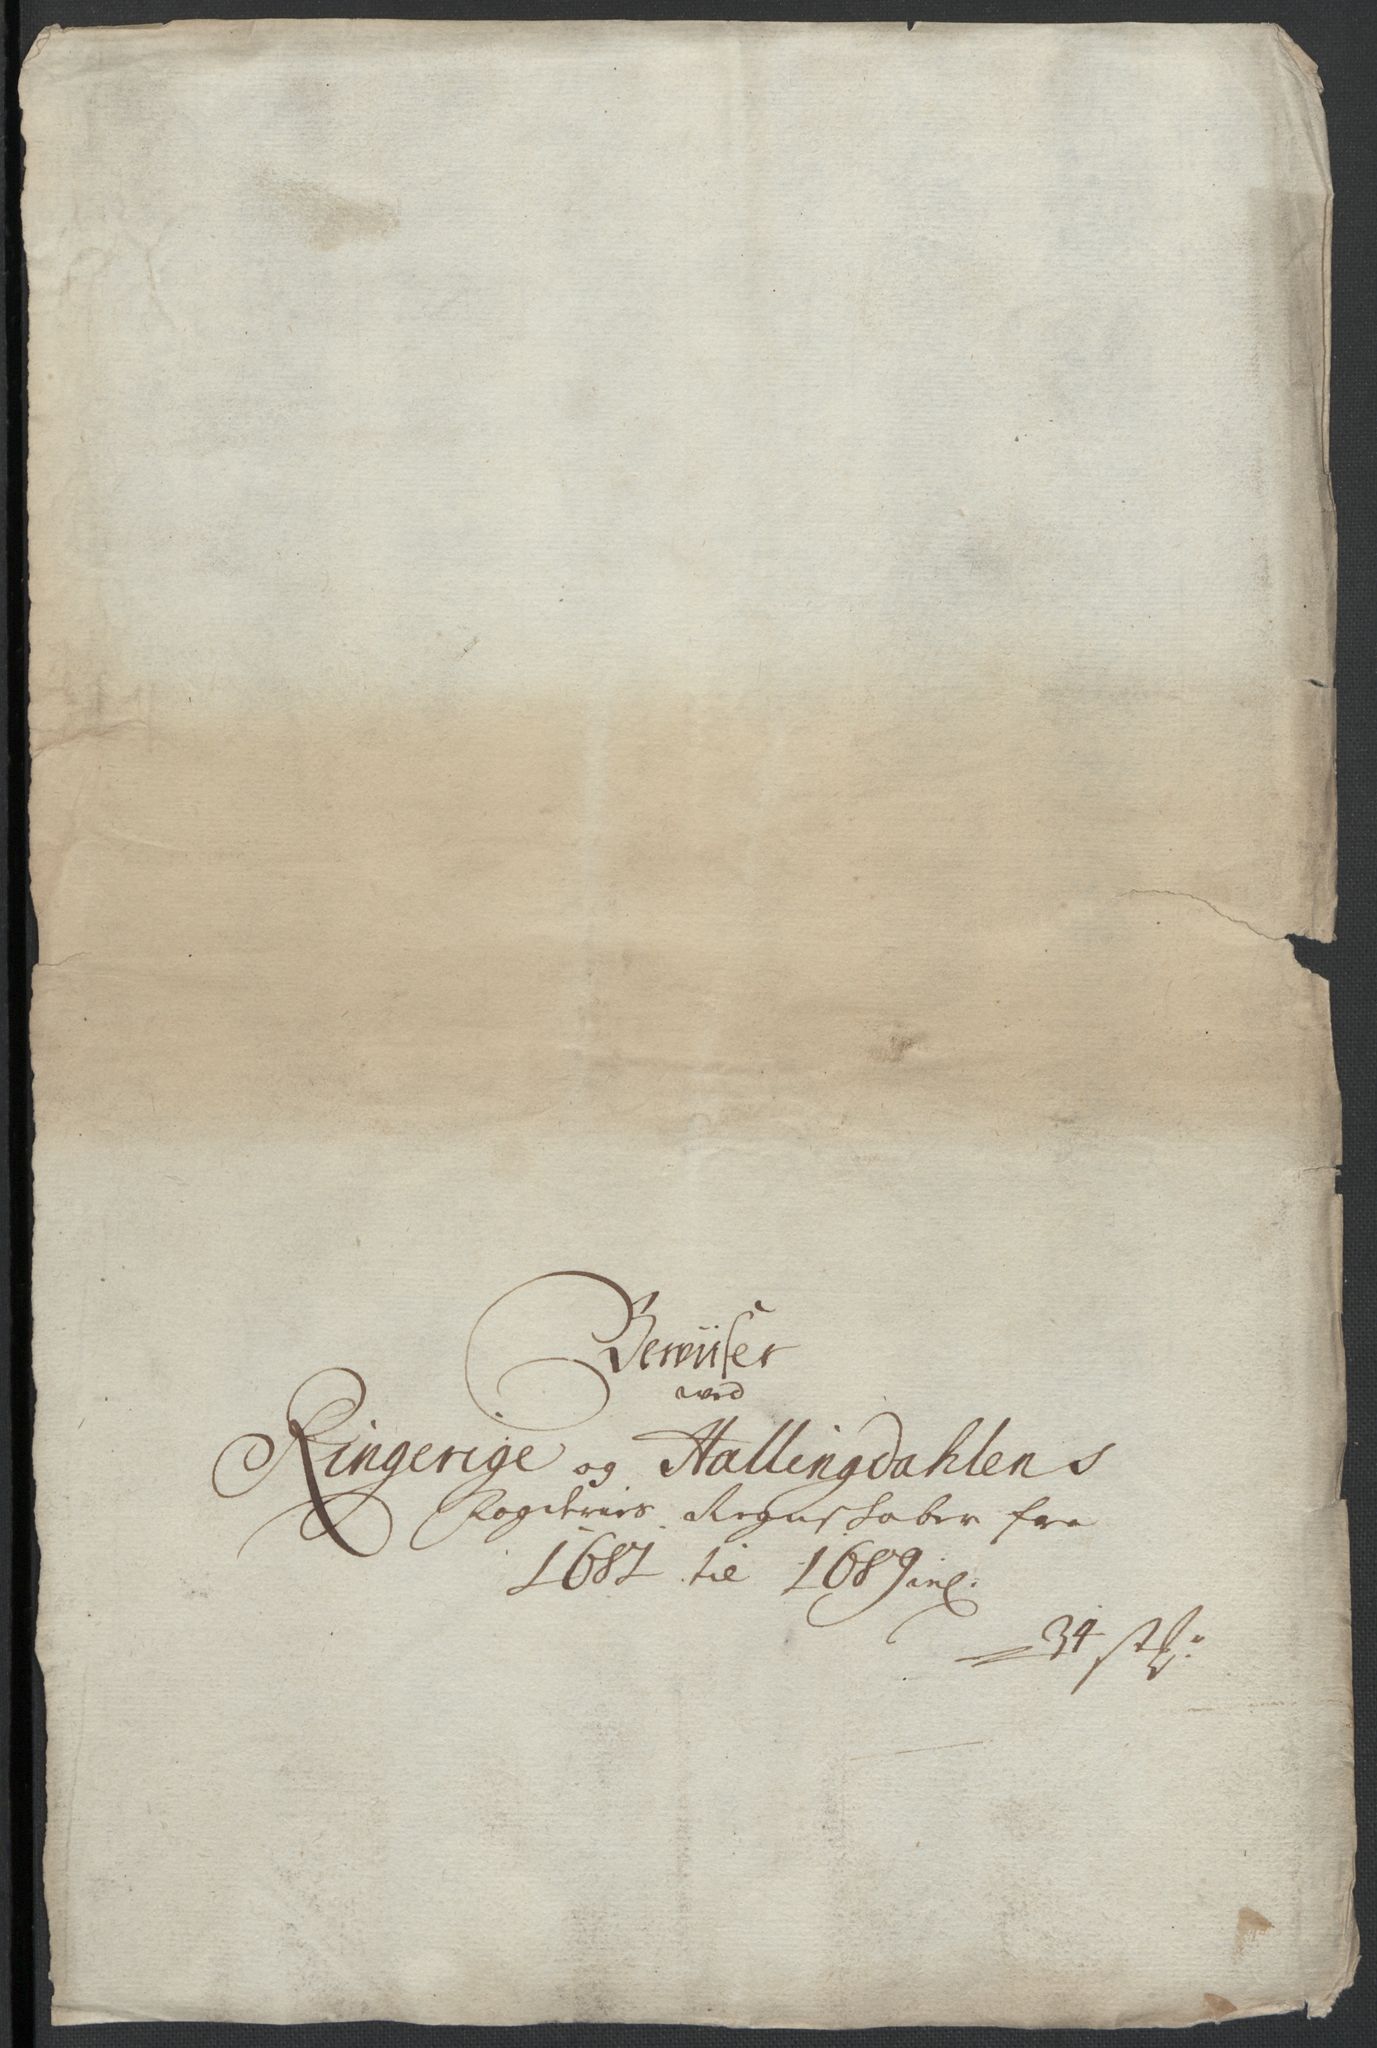 Beviiser
ved
Ringerige og Hallingdahlens
Fogderies Regnskaber fra
1681 til 1689 incl.
34 st